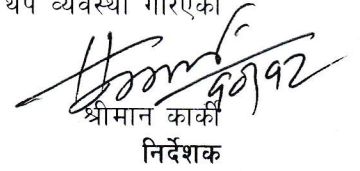 थप व्यवस्था गरिएको
श्रीमान कार्की
निर्देशक